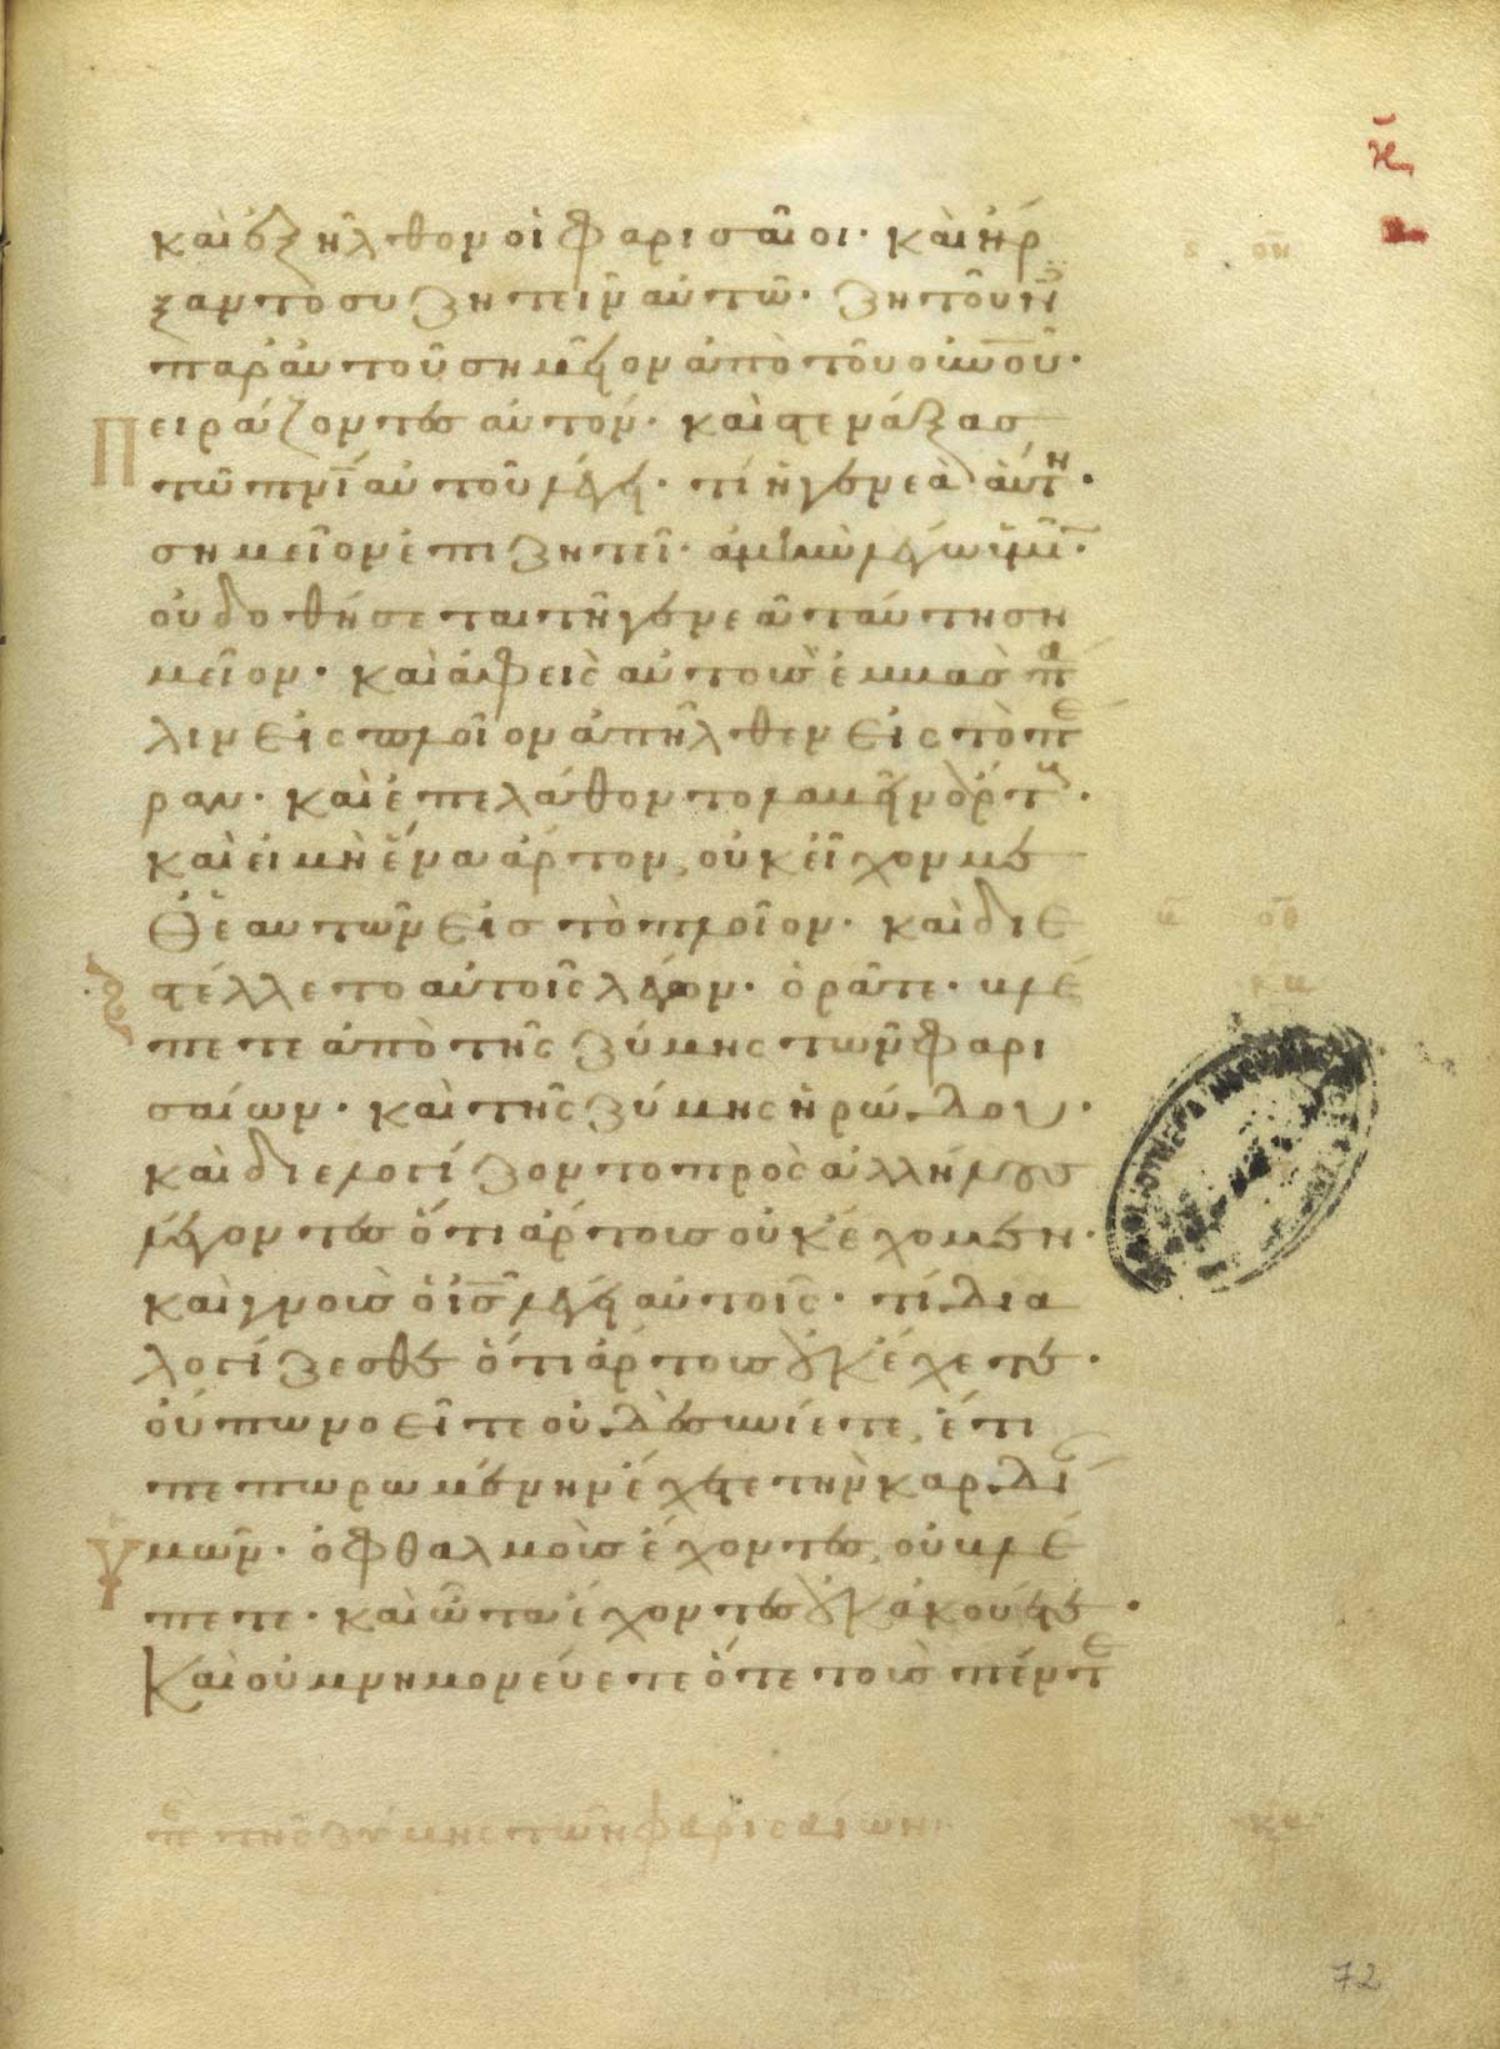 καὶ ἐξῆλθον οἱ φαρισαῖοι· καὶ ἤρ
ξαντο συζητεῖν αὐτῶ· ζητοῦν
παρ' αὐτοῦ σημεῖον ἀπὸ τοῦ οὐνοῦ·
Πειράζοντες αὐτόν· καὶ στενάξας
τῶ πνι αὐτοῦ λέγει· τί ἡ γενεὰ αὕτη·
σημεῖον ἐπιζητεῖ· ἀμὴν λέγω ὑμῖν·
οὐ δοθήσεται τῆ γενεᾶ ταύτη ση
μεῖον· καὶ ἀφεὶς αὐτοὺς ἐμβὰς πά
λιν εἰς πλοῖον ἀπῆλθεν εἰς τὸ πέ
ραν· καὶ ἐπελάθοντο λαβεῖν ἄρτους·
καὶ εἰ μὴ ἕνα ἄρτον, οὐκ εἶχον με
θ' ἑαυτῶν εἰς τὸ πλοῖον· καὶ διε
στέλλετο αὐτοῖς λέγων· ὁρᾶτε· βλέ
πετε ἀπὸ τῆς ζύμης τῶν φαρι
σαίων· καὶ τῆς ζύμης ἡρώδου·
καὶ διελογίζοντο πρὸς ἀλλήλους
λέγοντες ὅτι ἄρτους οὐκ ἔχομεν·
καὶ γνοὺς ὁ ις λέγει αὐτοῖς· τί δια
λογίζεσθε ὅτι ἄρτους οὐκ ἔχετε·
οὔπω νοεῖτε οὐδὲ συνίετε, ἔτι
πεπωρωμένην ἔχετε τὴν καρδί
Ὑμῶν· ὀφθαλμοὺς ἔχοντες, οὐ βλέ
πετε· καὶ ὦτα ἔχοντες οὐκ ἀκούετε·
Καὶ οὐ μνημονεύετε ὅτε τοὺς πέντε
τῆς ζύμης τῶν φαρισαίων
72